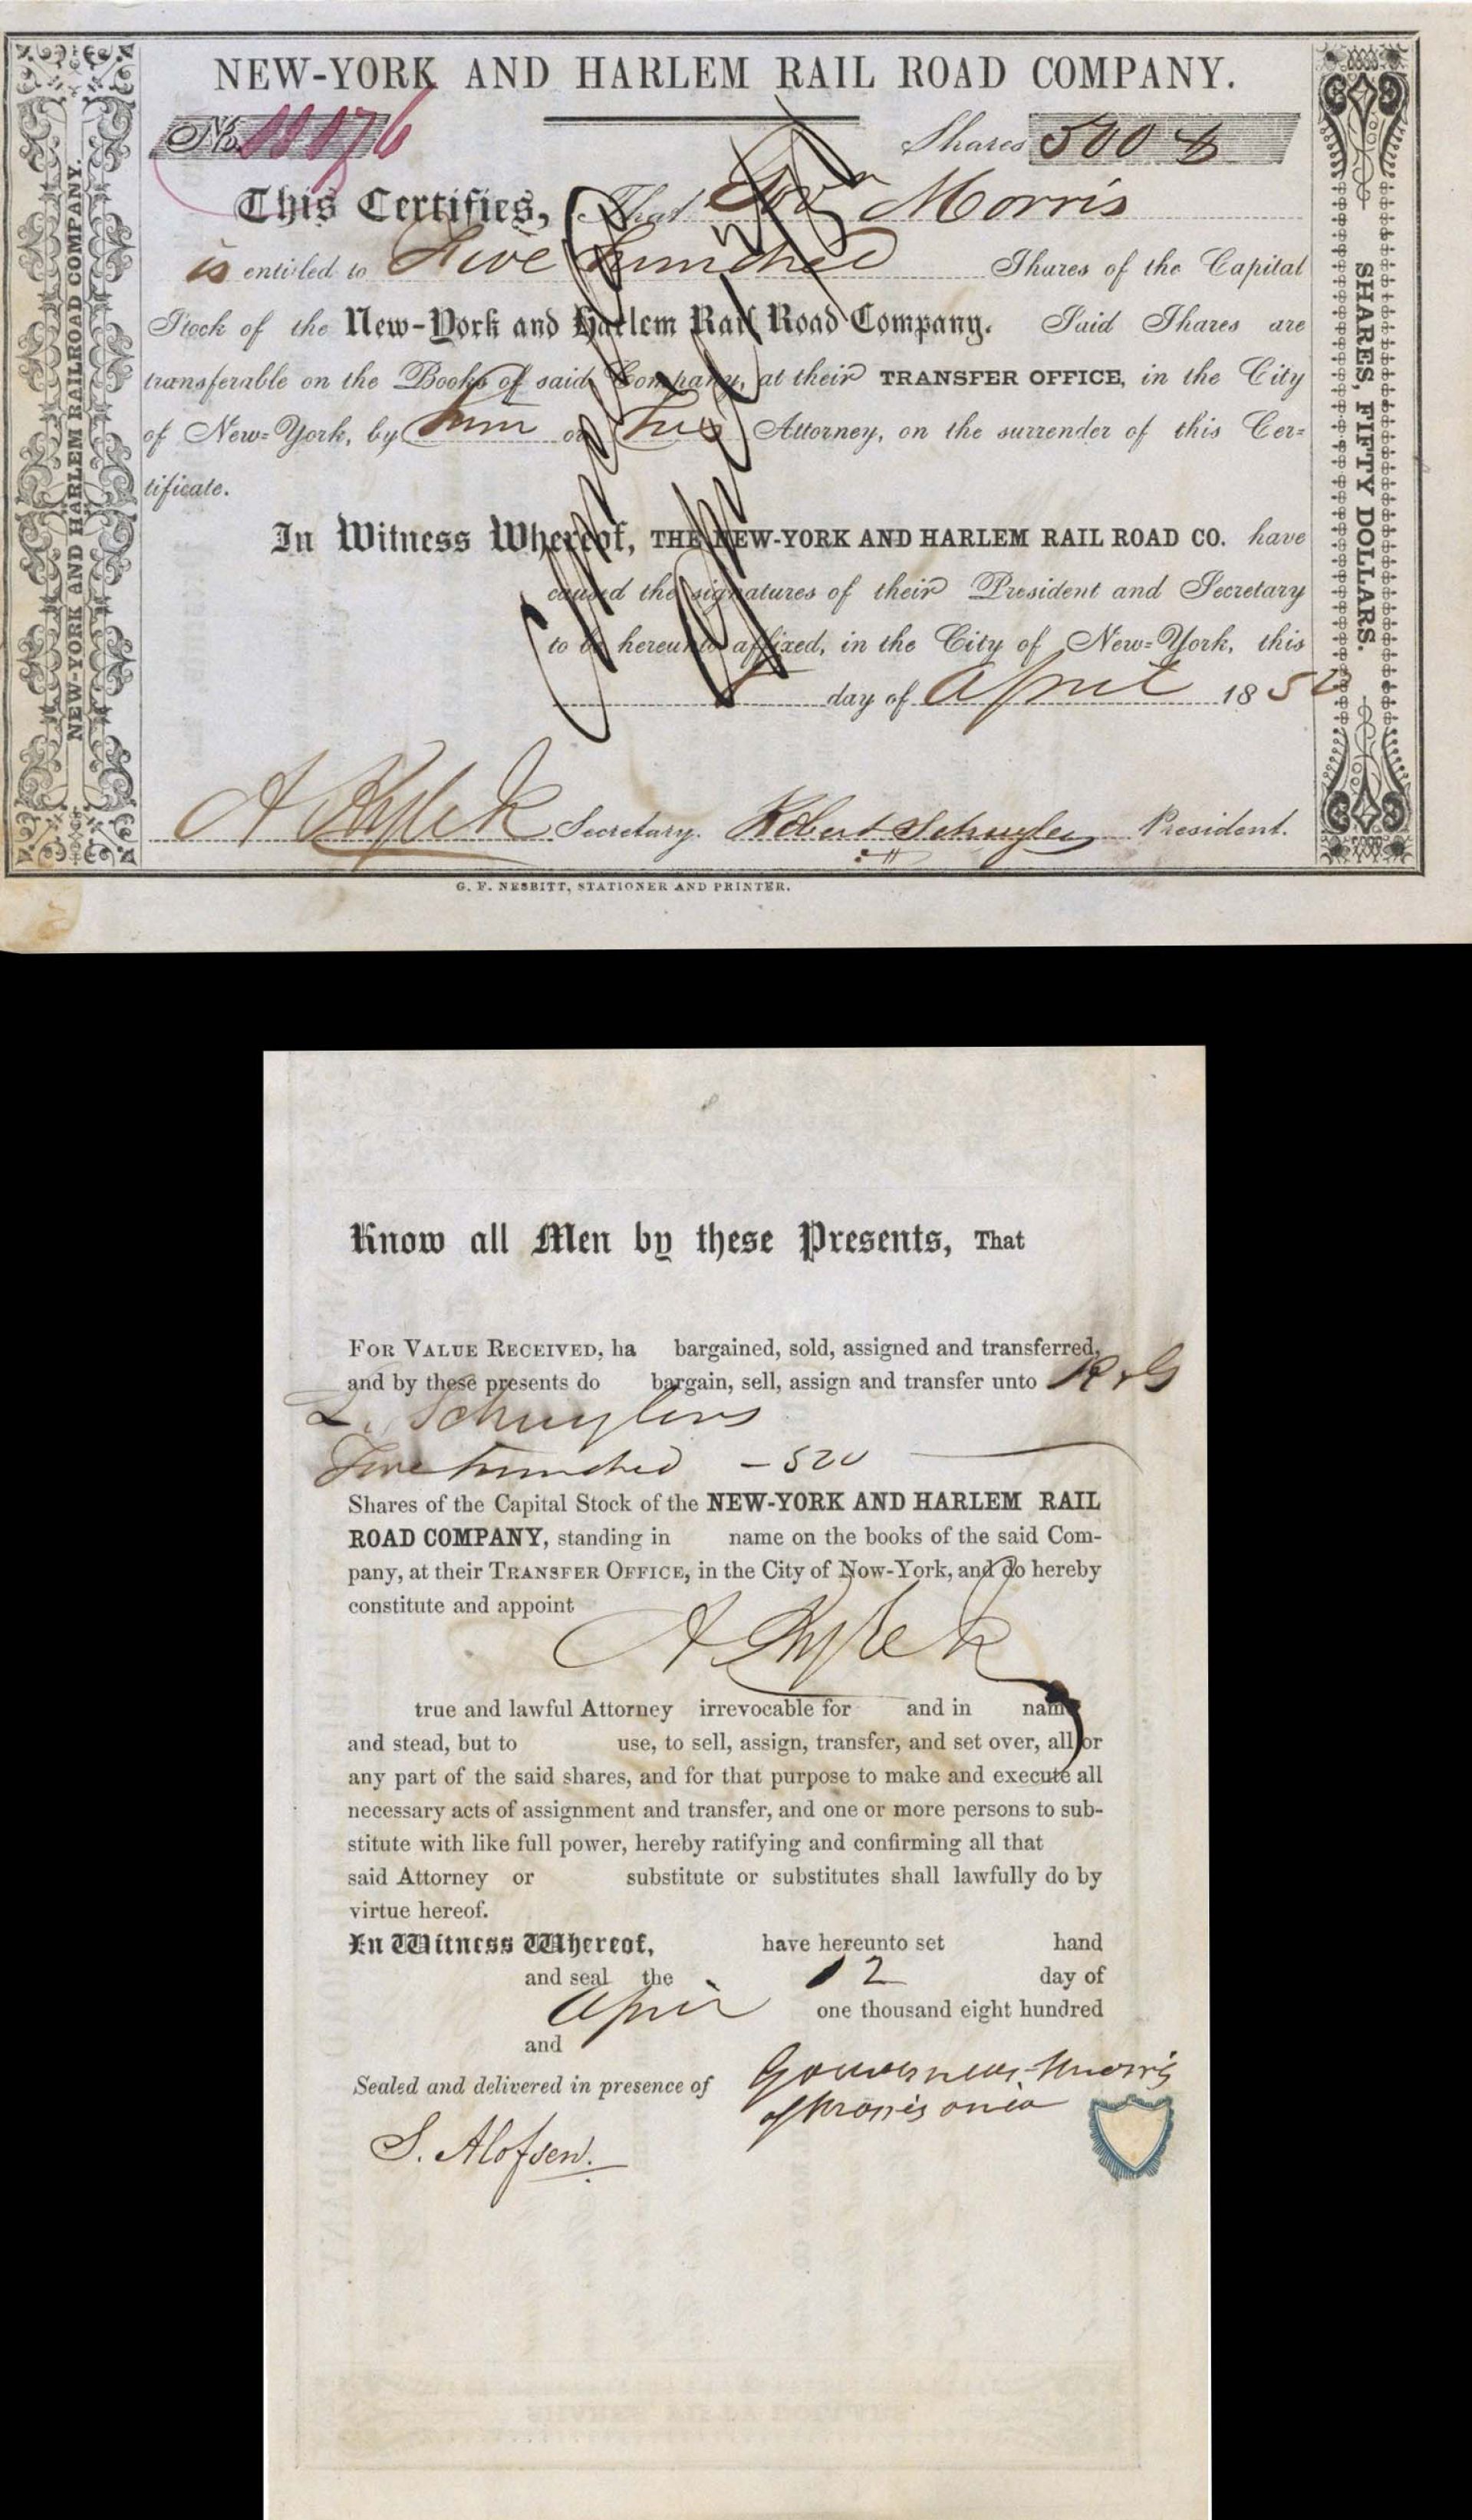 NEW-YORK AND HARLEM RAIL ROAD COMPANY.
No.
Shares 500
This Certifies, That Gov^r Morris
is entitled to Five hundred Shares of the Capital
Stock of the New-York and Harlem Rail Road Company. Said Shares are
transferable on the Books of said Company, at their TRANSFER OFFICE, in the City
of New-York, by him or his Attorney, on the surrender of this Cer-
tificate.
In Witness Whereof, THE NEW-YORK AND HARLEM RAIL ROAD CO. have
caused the signatures of their President and Secretary
to be hereunto affixed, in the City of New-York, this
day of April 1850
Secretary. Robert Schuyler President.
G. F. NESBITT, STATIONER AND PRINTER.
NEW-YORK AND HARLEM RAILROAD COMPANY.
SHARES, FIFTY DOLLARS.
Cancelled
April
Know all Men by these Presents, That
FOR VALUE RECEIVED, ha bargained, sold, assigned and transferred,
and by these presents do bargain, sell, assign and transfer unto R & G
L. Schuylers
Five hundred - 500
Shares of the Capital Stock of the NEW-YORK AND HARLEM RAIL
ROAD COMPANY, standing in name on the books of the said Com-
pany, at their TRANSFER OFFICE, in the City of Now-York, and do hereby
constitute and appoint
true and lawful Attorney irrevocable for and in name
and stead, but to use, to sell, assign, transfer, and set over, all or
any part of the said shares, and for that purpose to make and execute all
necessary acts of assignment and transfer, and one or more persons to sub-
stitute with like full power, hereby ratifying and confirming all that
said Attorney or substitute or substitutes shall lawfully do by
virtue hereof.
In Witness Whereof, have hereunto set hand
and seal the 12 day of
April one thousand eight hundred
and
Sealed and delivered in presence of Gouverneur Morris
of Morrisania
S. Alofsen.